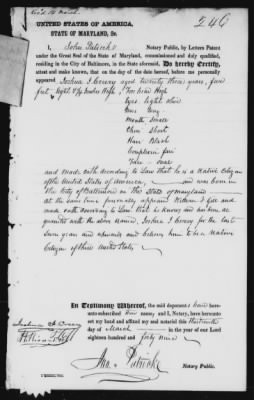 246
UNITED STATES OF AMERICA,
STATE OF MARYLAND, Sc.
I, John Patrick Notary Public, by Letters Patent
under the Great Seal of the State of Maryland, commissioned and duly qualified,
residing in the City of Baltimore, in the State aforesaid, Do hereby Certify,
attest and make known, that on the day of the date hereof, before me personally
appeared Joshua F. Corey aged twenty three years, five
feet, eight & Inches high, Forehead High
Eyes light
Nose
Mouth Small
Chin Short
Hair Black
Complexion fair
Face Oval
and made oath according to Law that he is a Native Citizen
of the United States of America, and was born in
the City of Baltimore in the State of Maryland
at the same time personally appeared William
made oath according to Law that he knows and has been ac
quainted with the above named, Joshua F. Corey for the last
years and upwards and believes him to be a Native
Citizen of the United States
In Testimony Whereof, the said deponent have
hereunto subscribed their names and I, Notary, have hereunto
set my hand and affixed my notarial this thirteenth
day of March in the year of our Lord
eighteen hundred and forty nine
Joshua F. Corey
Jno. Patrick
Notary Public.